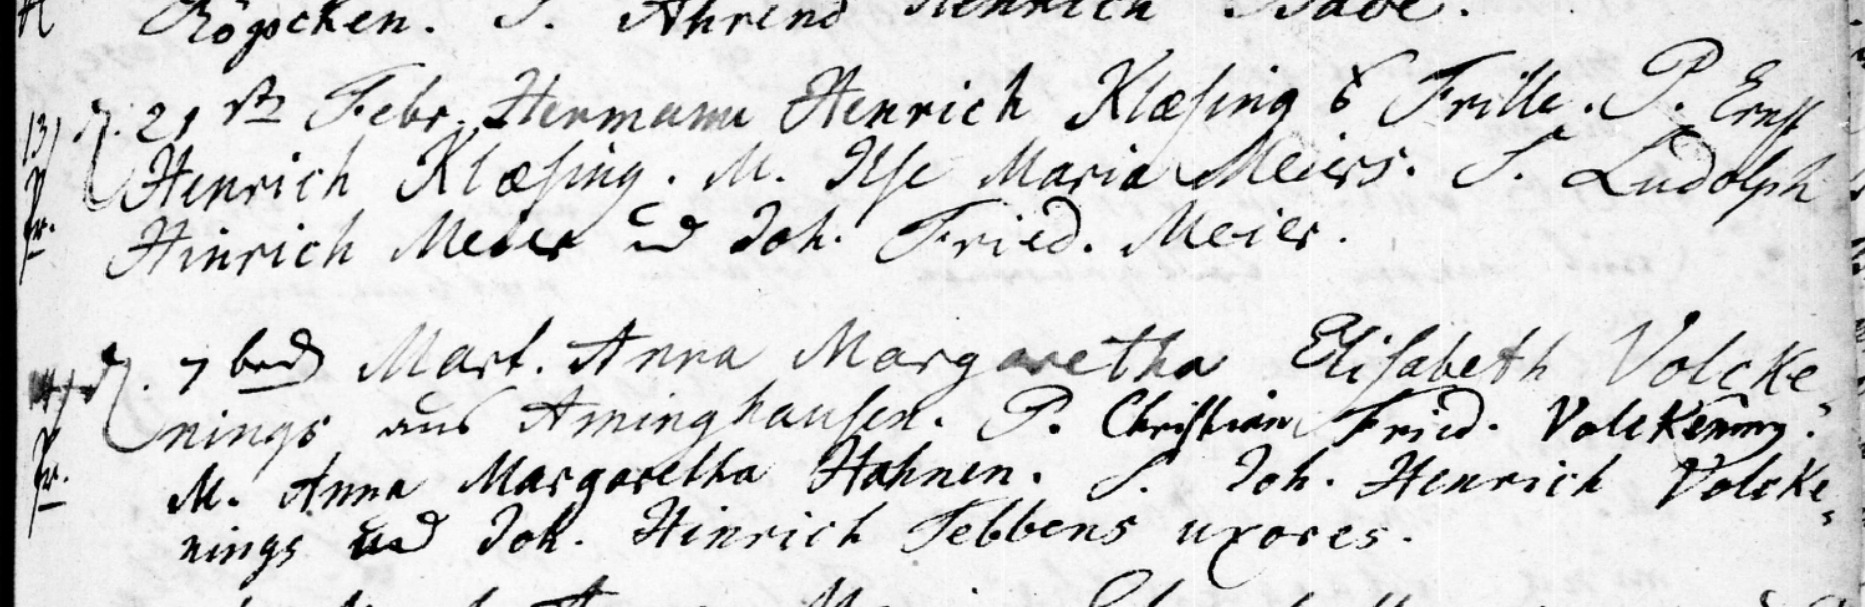 Röpcken. S. Ahrend Henrich Bade.
13) d. 21 st Febr. Hermann Henrich Klæsing Frille. P. Ernst
Henrich Klæsing. M. Ilse Maria Meiers. S. Ludolph
Hinrich Meier ud Joh. Fried. Meier.
14) d. 7 Mart. Anna Margaretha Elisabeth Volcke-
nings aus Aminghausen. P. Christian Fried. Volckening.
M. Anna Margaretha Hahnen. S. Joh. Henrich Volcke-
nings und Joh. Hinrich Tebbens uxores.